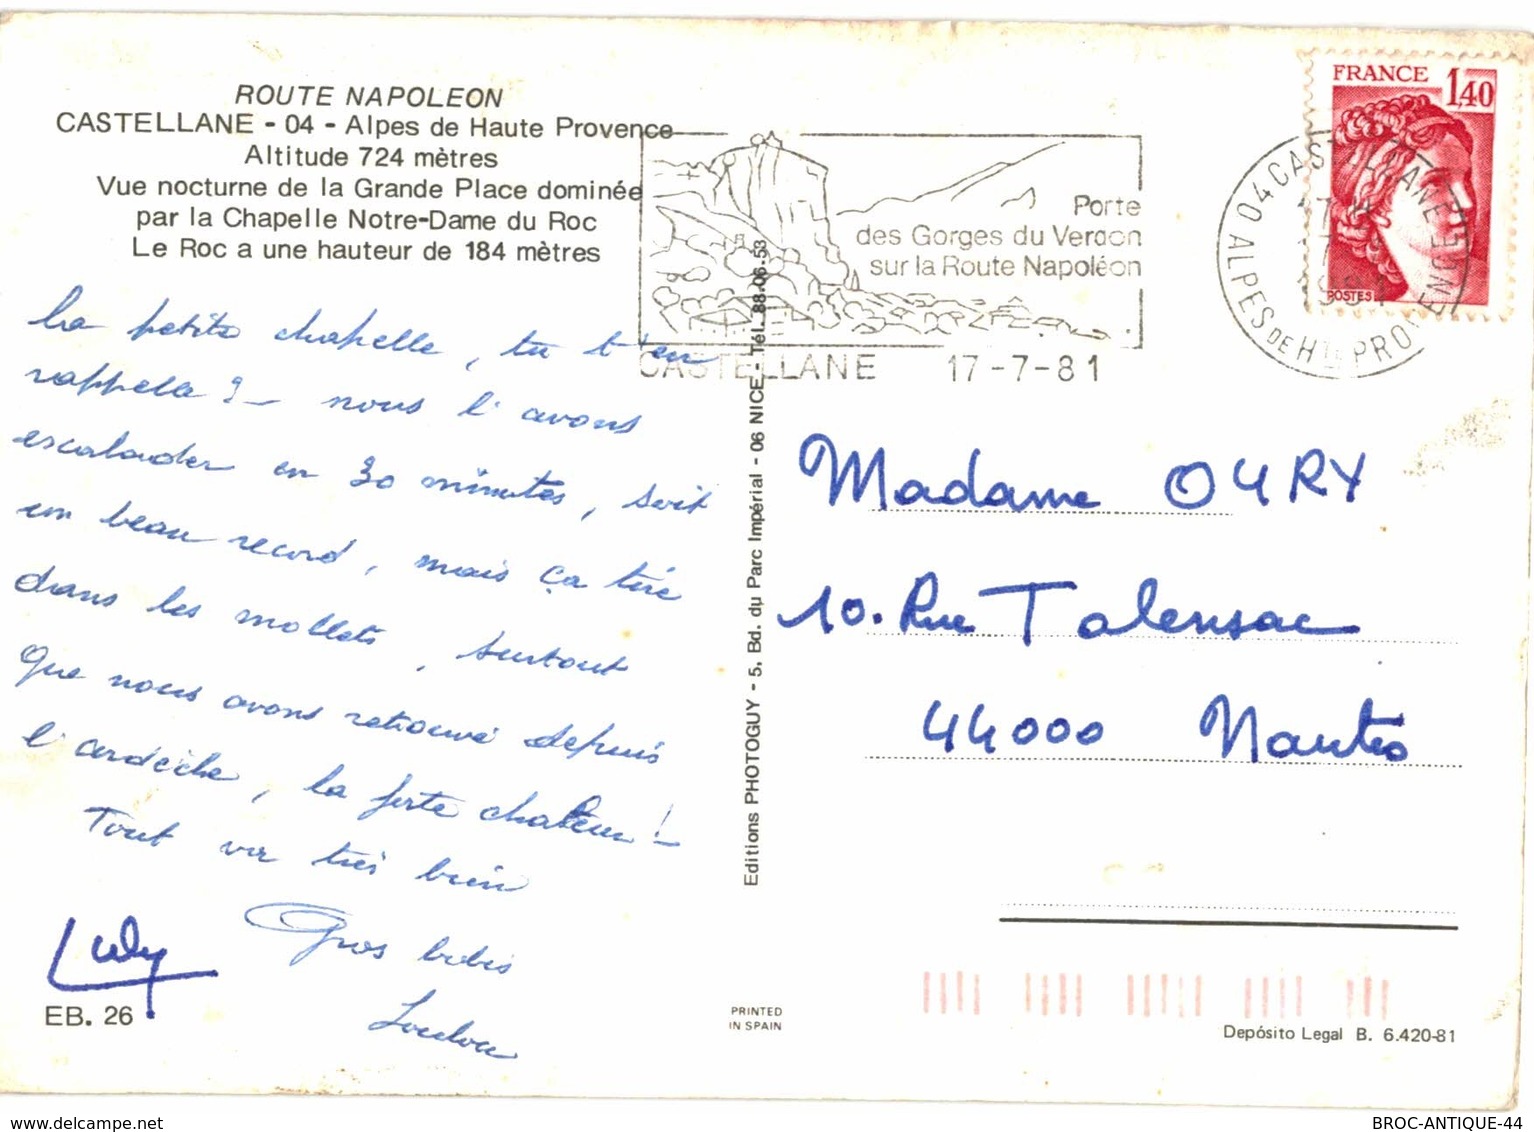 ROUTE NAPOLEON
CASTELLANE - 04 - Alpes de Haute Provence
Altitude 724 mètres
Vue nocturne de la Grande Place dominée
par la Chapelle Notre-Dame du Roc
Le Roc a une hauteur de 184 mètres
La petite chapelle, tu t'en
rappelle ? - nous l'avons
escalader en 30 minutes, soit
un beau record, mais ça tire
dans les mollets, surtout
que nous avons retrouvé depuis
l'ardèche, la forte chaleur ! -
Tout va très bien
Gros bibis
Loulou
Luly
EB. 26
Editions PHOTOGUY - 5, Bd. du Parc Impérial - 06 NICE - Tél. 88.06.53
PRINTED
IN SPAIN
Porte
des Gorges du Verdon
sur la Route Napoléon
CASTELLANE 17-7-81
FRANCE 1,40
POSTES
04 CASTELLANE
ALPES DE HTE PROVENCE
Madame OURY
10. Rue Talensac
44000 Nantes
Depósito Legal B. 6.420-81
www.delcampe.net
BROC-ANTIQUE-44